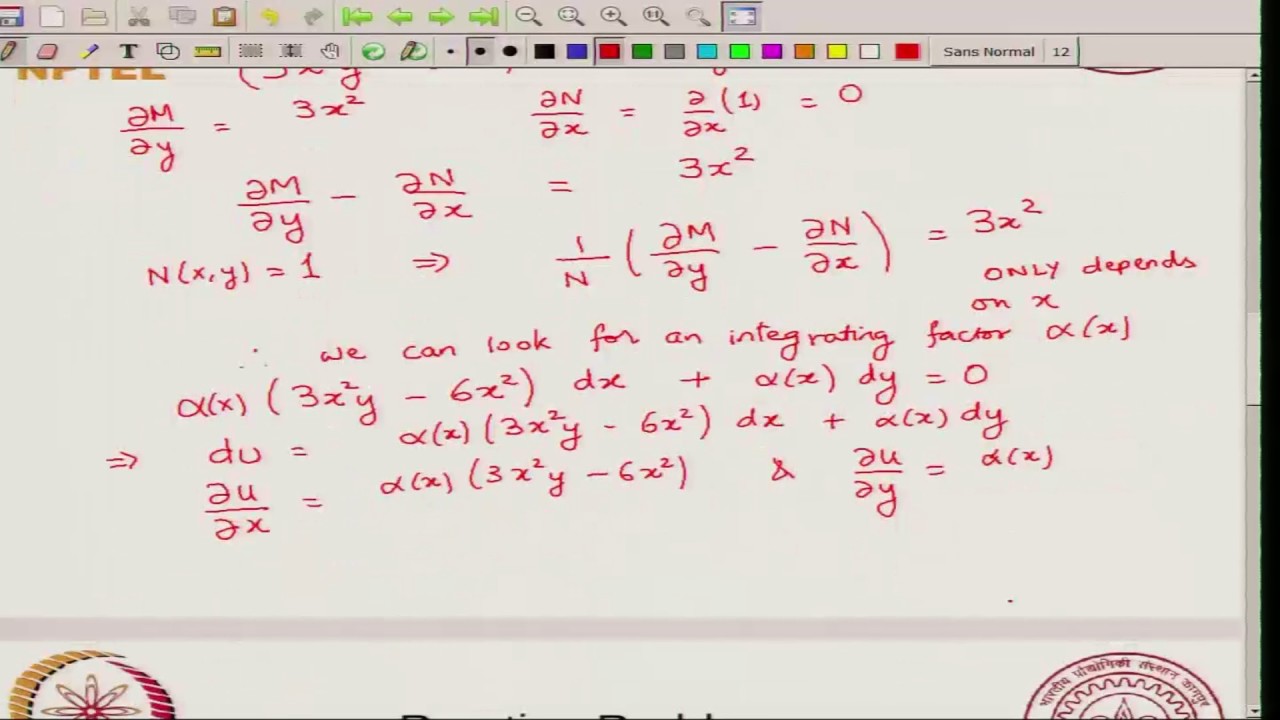 Sans Normal 12
NPTEL
∂M/∂y = 3x² ∂N/∂x = ∂/∂x (1) = 0
∂M/∂y − ∂N/∂x = 3x²
N(x,y) = 1 ⇒ 1/N (∂M/∂y − ∂N/∂x) = 3x²
ONLY depends
on x
∴ we can look for an integrating factor α(x)
α(x) (3x²y − 6x²) dx + α(x) dy = 0
⇒ du = α(x) (3x²y − 6x²) dx + α(x) dy
∂u/∂x = α(x) (3x²y − 6x²) & ∂u/∂y = α(x)